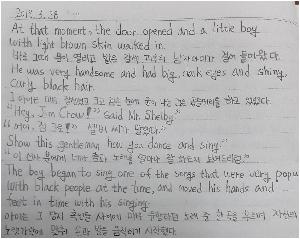 2019. 3. 28
At that moment, the door opened and a little boy
with light brown skin walked in.
바로 그때 문이 열리고 밝은 갈색 피부의 남자아이가 걸어 들어왔다.
He was very handsome and had big, dark eyes and shiny,
curly black hair.
그 아이는 매우 잘생겼고 크고 검은 눈에 윤이 나는 검은 곱슬머리를 하고 있었다.
"Hey, Jim Crow!" said Mr. Shelby.
"어이, 짐 크로!" 셸비 씨가 말했다.
Show this gentleman how you dance and sing."
"이 신사분에게 네가 춤과 노래를 얼마나 잘 하는지 보여드려라."
The boy began to sing one of the songs that were very popu
with black people at the time, and moved his hands and
feet in time with his singing.
아이는 그 당시 흑인들 사이에 매우 유행하던 노래 중 한 곡을 부르며 자신의
노랫가락에 맞춰 손과 발을 움직이기 시작했다.